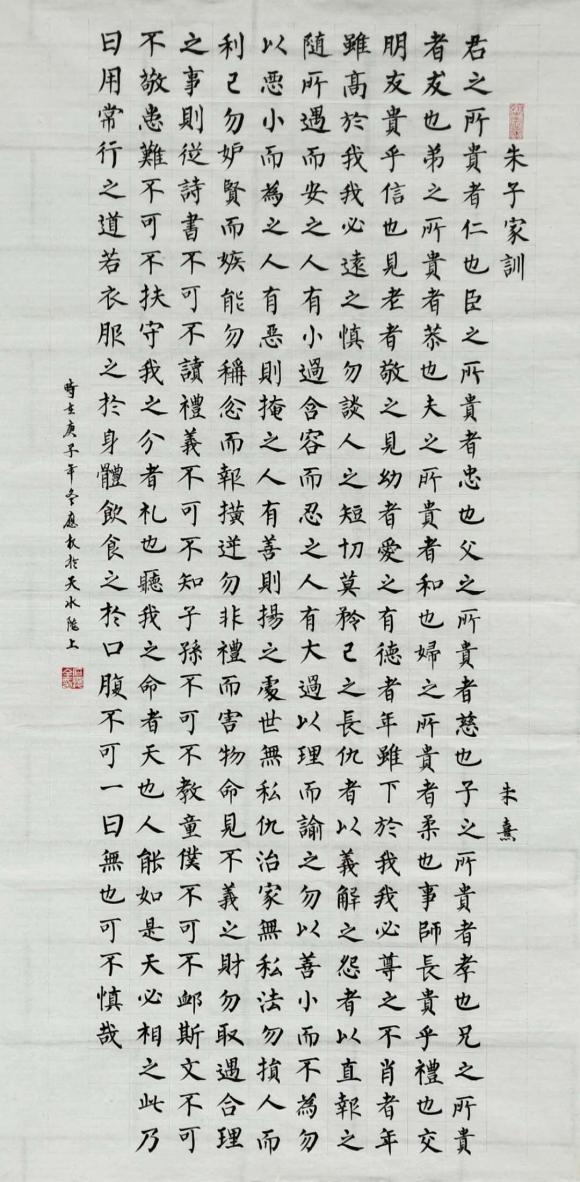 朱子家訓 朱熹
君之所貴者仁也臣之所貴者忠也父之所貴者慈也子之所貴者孝也兄之所貴
者友也弟之所貴者恭也夫之所貴者和也婦之所貴者柔也事師長貴乎禮也交
朋友貴乎信也見老者敬之見幼者愛之有德者年雖下於我我必尊之不肖者年
雖高於我我必遠之慎勿談人之短切莫矜己之長仇者以義解之怨者以直報之
隨所遇而安之人有小過含容而忍之人有大過以理而諭之勿以善小而不為勿
以惡小而為之人有惡則掩之人有善則揚之處世無私仇治家無私法勿損人而
利己勿妒賢而嫉能勿稱忿而報橫逆勿非禮而害物命見不義之財勿取遇合理
之事則從詩書不可不讀禮義不可不知子孫不可不教童僕不可不卹斯文不可
不敬患難不可不扶守我之分者礼也聽我之命者天也人能如是天必相之此乃
日用常行之道若衣服之於身體飲食之於口腹不可一日無也可不慎哉
時在庚子年冬應於天水隴上